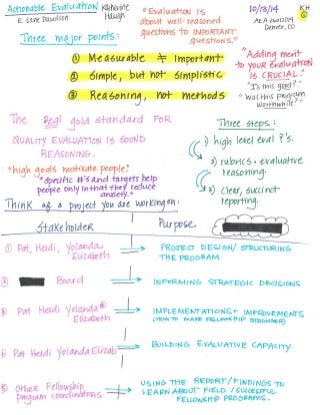 Actionable Evaluation
Katherine
Haugh
E. Jane Davidson
"Evaluation is
about well-reasoned
questions to IMPORTANT
questions."
10/23/14
KH
©
AEA eval2014
Denver, CO
Three major points:
① Measurable ≠ Important
② Simple, but not simplistic
③ Reasoning, not methods
"Adding merit
to your evaluation
is CRUCIAL."
"Is this good?"
"Was this program
worthwhile?"
The Real gold standard for
QUALITY EVALUATION IS SOUND
REASONING.
"high goals motivate people."
"specific #'s and targets help
people only in that they reduce
anxiety."
Three steps:
1) high level eval ?'s.
2) rubrics + evaluative
reasoning.
3) clear, succinct
reporting.
Think of a project you are working on:
Stakeholder
Purpose
① Pat, Heidi, Yolanda
Elizabeth
PROTECT DESIGN/STRUCTURING
THE PROGRAM
Board
INFORMING STRATEGIC DECISIONS
③ Pat Heidi Yolanda
Elizabeth
IMPLEMENTATIONS + IMPROVEMENTS
(HOW TO MAKE FELLOWSHIP STRONGER)
Pat Heidi Yolanda Elizab
BUILDING EVALUATIVE CAPACITY
⑤ Other Fellowship
program coordinators
USING THE REPORT/FINDINGS TO
LEARN ABOUT FIELD / SUCCESSFUL
FELLOWSHIP PROGRAMS.